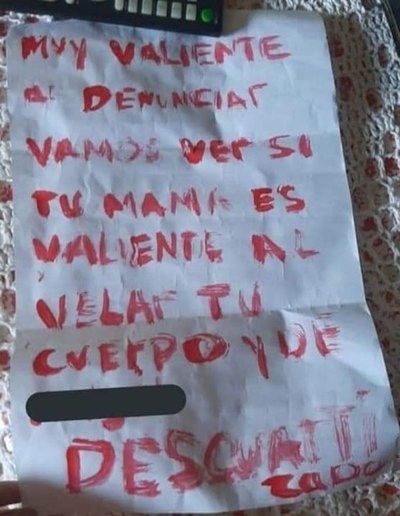 MUY VALIENTE
AL DENUNCIAR
VAMOS VER SI
TU MAMA ES
VALIENTE AL
VELAR TU
CUERPO Y DE
DESCUARTI
ZADO